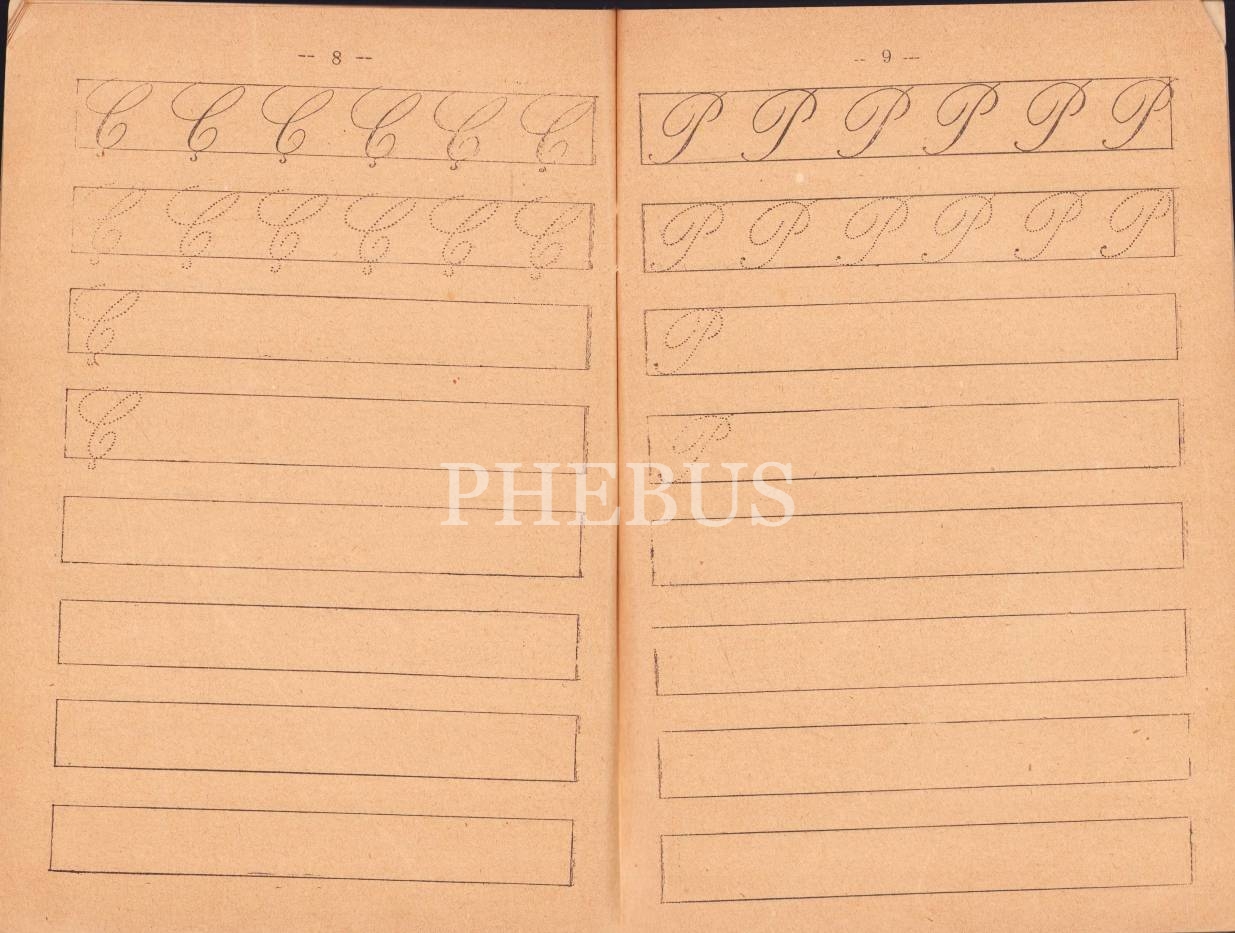 -- 8 --
Ç Ç Ç Ç Ç Ç
Ç Ç Ç Ç Ç Ç
Ç
Ç
-- 9 --
P P P P P P
P P P P P P
P
P
PHEBUS